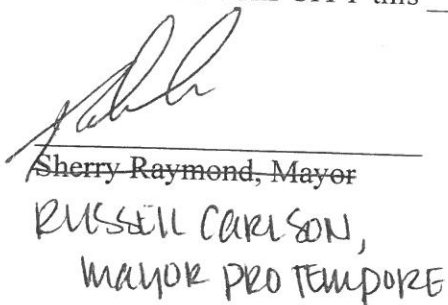 this
Sherry Raymond, Mayor
RUSSELL CARLSON,
MAYOR PRO TEMPORE